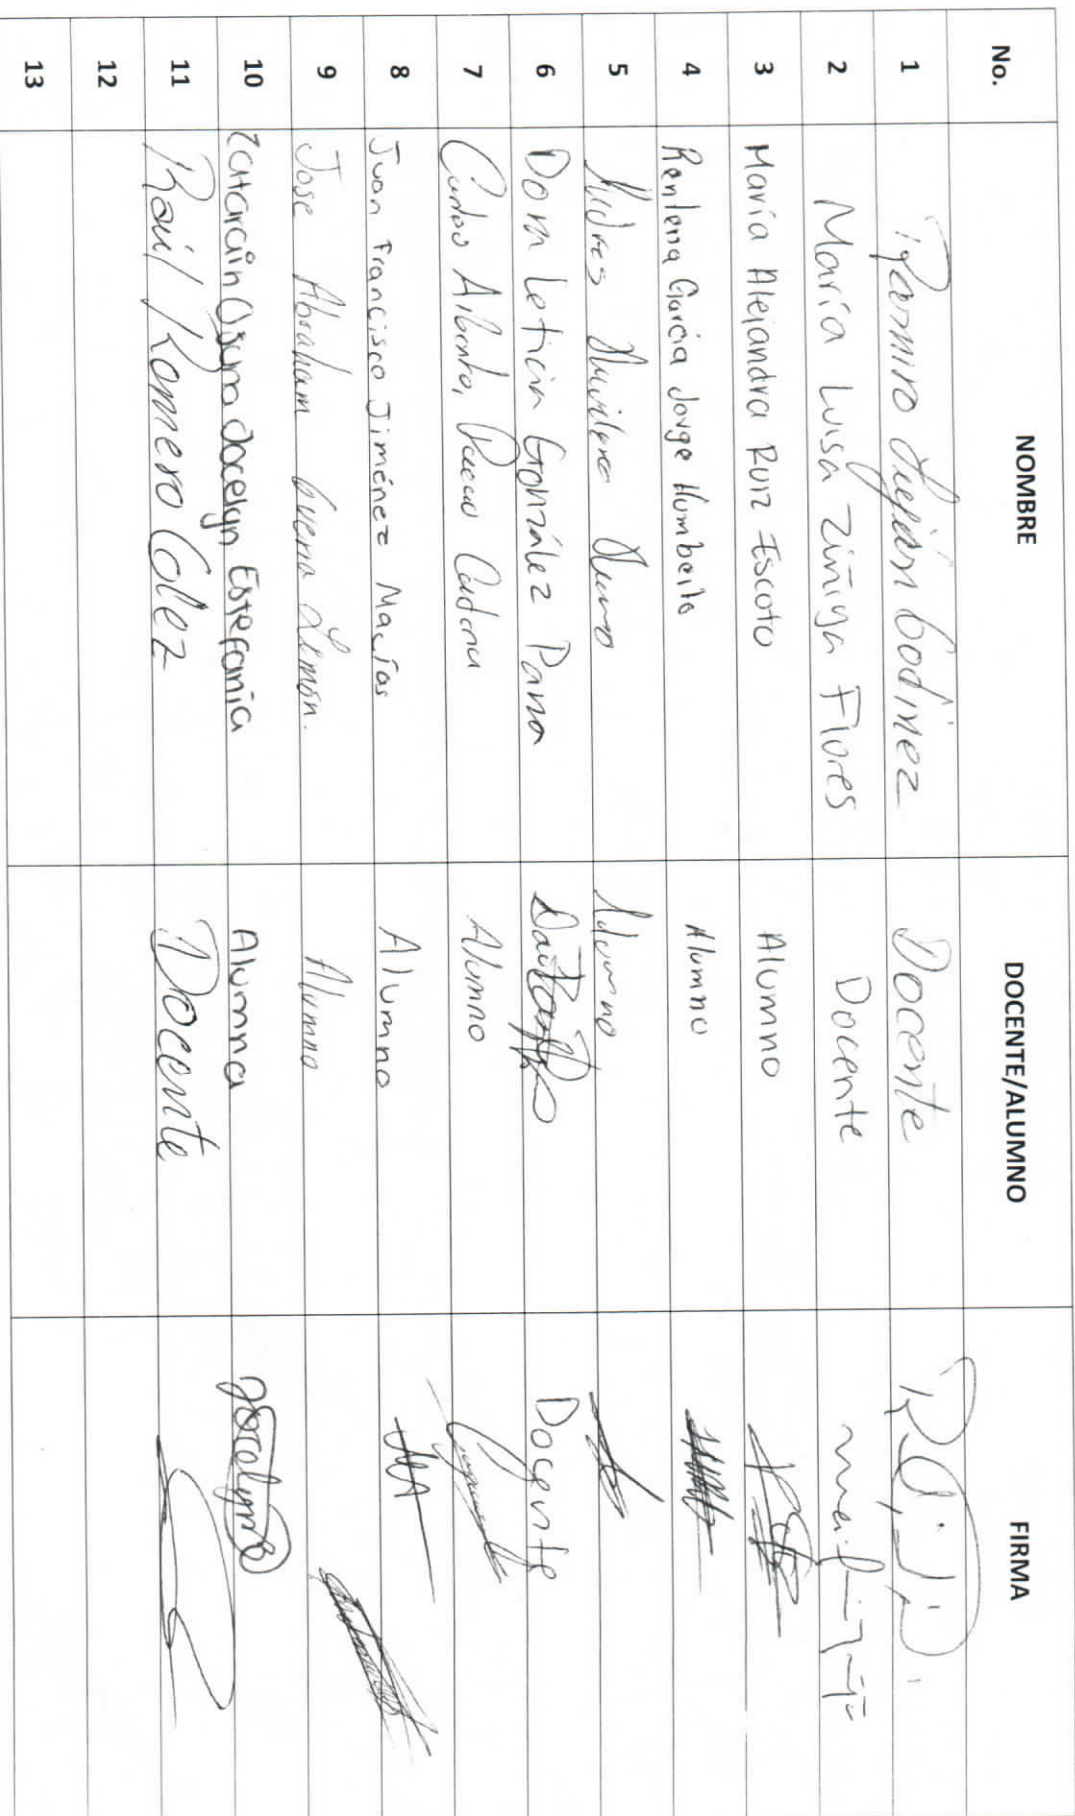 No. NOMBRE DOCENTE/ALUMNO FIRMA
1 Ramiro Luján Godinez Docente
2 María Luisa Zúñiga Flores Docente
3 María Alejandra Ruiz Escoto Alumno
4 Rentería García Jorge Humberto Alumno
5 Alumno
6 Dora Leticia González Parra Docente
7 Carlos Alberto Cadena Alumno
8 Juan Francisco Jiménez Macías Alumno
9 Jose Abraham Limón. Alumno
10 Zatarain Osuna Jocelyn Estefanía Alumna Jocelyn
11 Raúl Romero Glez Docente
12
13